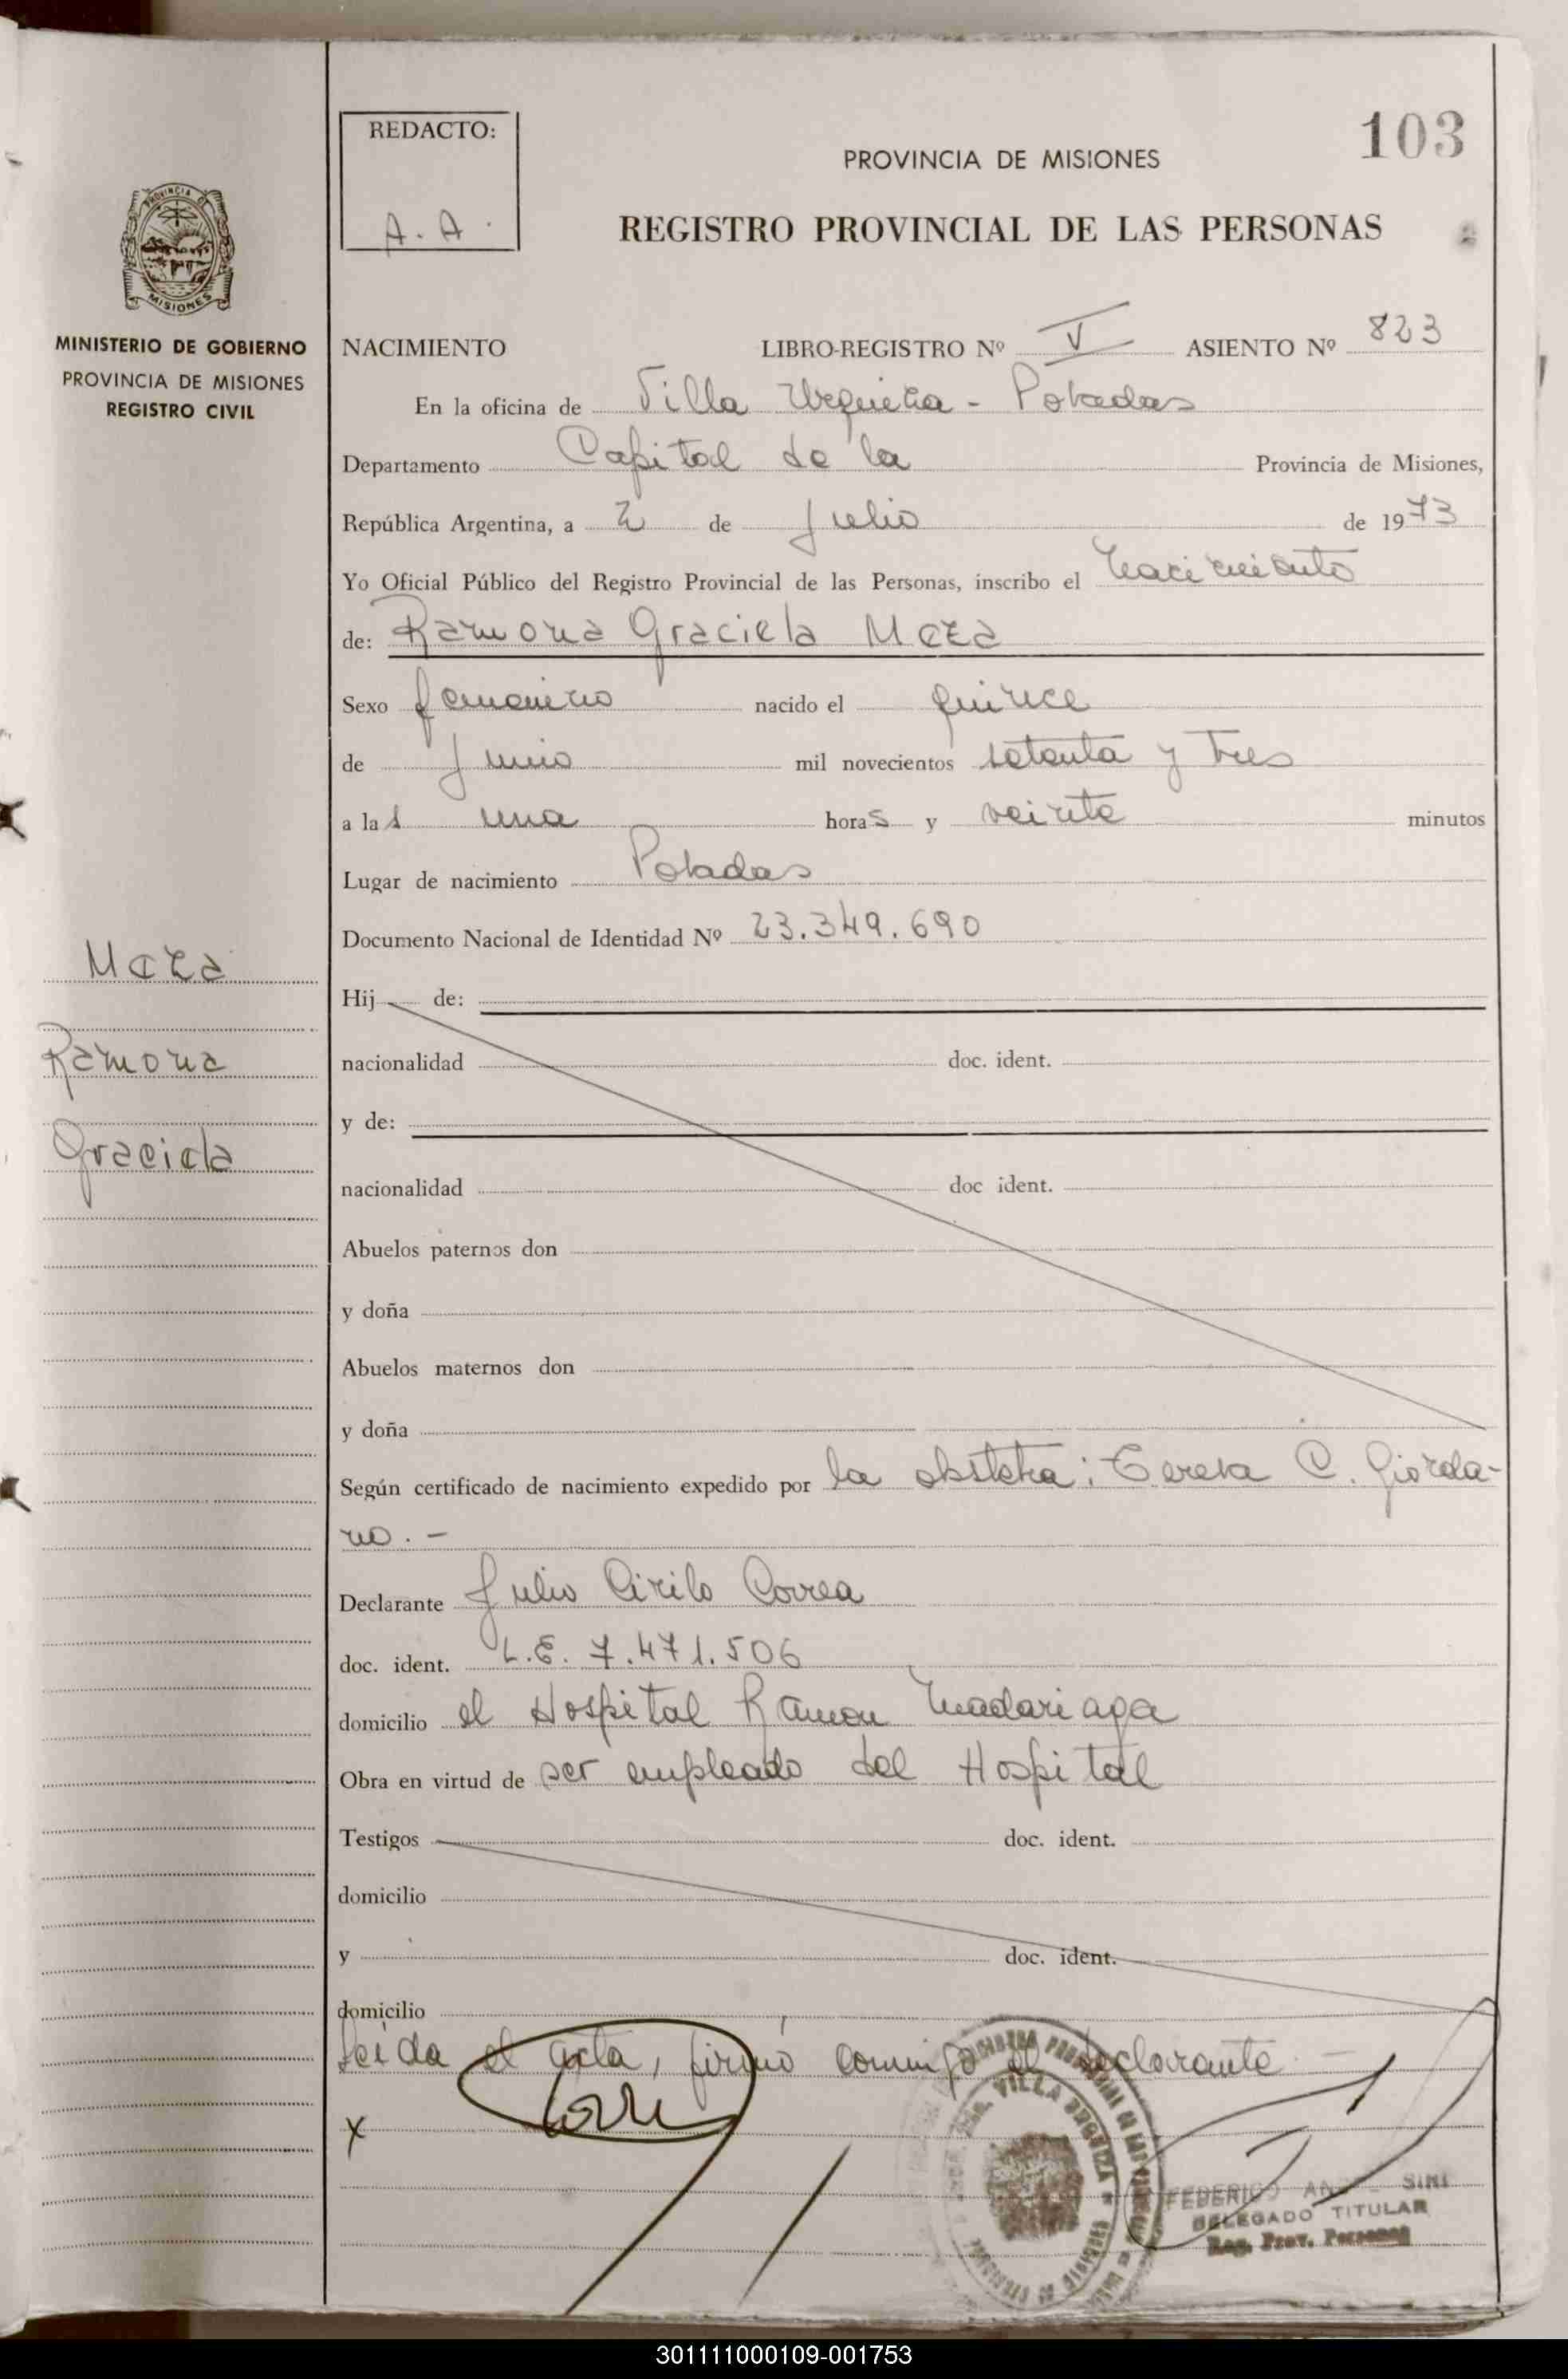 REDACTO:
A. A.
103
PROVINCIA DE MISIONES
REGISTRO PROVINCIAL DE LAS PERSONAS
PROVINCIA DE
MISIONES
MINISTERIO DE GOBIERNO
PROVINCIA DE MISIONES
REGISTRO CIVIL
NACIMIENTO LIBRO-REGISTRO Nº V ASIENTO Nº 823
En la oficina de Villa Urquiza - Posadas
Departamento Capital de la Provincia de Misiones,
República Argentina, a 2 de Julio de 1973
Yo Oficial Público del Registro Provincial de las Personas, inscribo el nacimiento
de: Ramona Graciela Meza
Sexo femenino nacido el quince
de Junio mil novecientos setenta y tres
a las una horas y veinte minutos
Lugar de nacimiento Posadas
Documento Nacional de Identidad Nº 23.349.690
Meza
Ramona
Graciela
Hij de:
nacionalidad doc. ident.
y de:
nacionalidad doc ident.
Abuelos paternos don
y doña
Abuelos maternos don
y doña
Según certificado de nacimiento expedido por la obstetra: Teresa C. Giorda-
no. -
Declarante Julio Cirilo Correa
doc. ident. L.E. 7.471.506
domicilio el Hospital Ramon Madariaga
Obra en virtud de ser empleado del Hospital
Testigos doc. ident.
domicilio
y doc. ident.
domicilio
Leida el acta, firmó conmigo el declarante. -
x
VILLA URQUIZA
FEDERICO SIRI
DELEGADO TITULAR
Reg. Prov. Personas
301111000109-001753